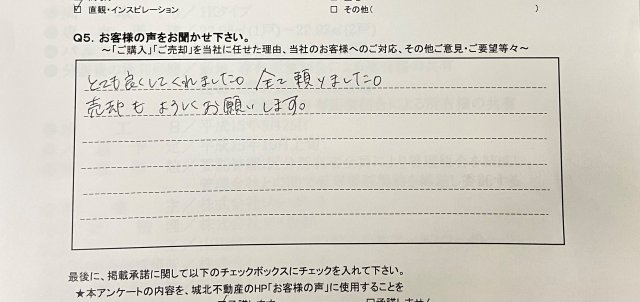 ☑ 直観・インスピレーション □ その他( )
Q5. お客様の声をお聞かせ下さい。
～「ご購入」「ご売却」を当社に任せた理由、当社のお客様へのご対応、その他ご意見・ご要望等々～
とても良くしてくれました。全て頼りました。
売却もよろしくお願いします。
最後に、掲載承諾に関して以下のチェックボックスにチェックを入れて下さい。
★本アンケートの内容を、城北不動産のHP「お客様の声」に使用することを